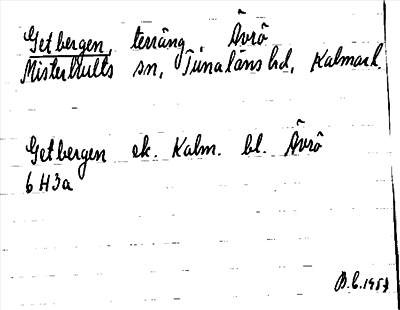 Getbergen, terräng Ävrö
Misterhults sn, Tunaläns hd, Kalmar l.
Getbergen ek. Kalm. bl. Ävrö
6 H3a
B.C. 1959